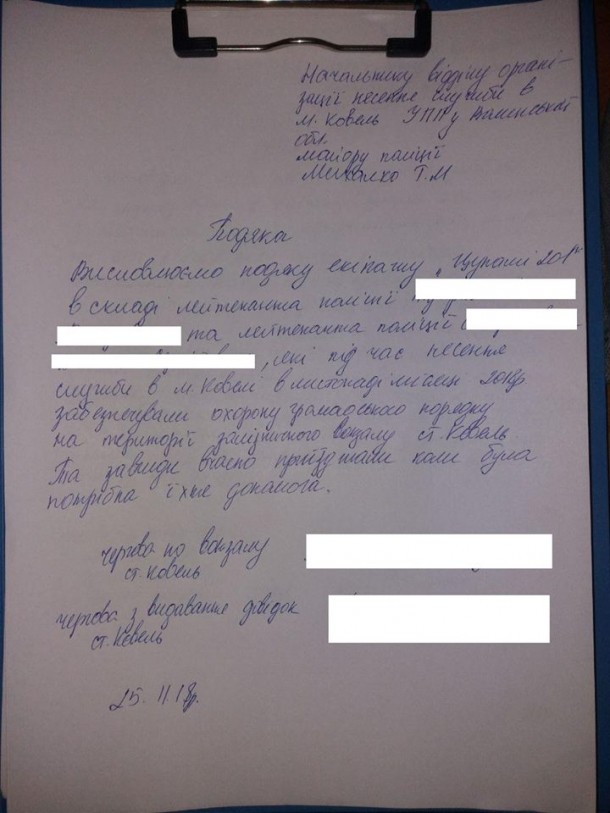 Начальнику відділу органі-
зації несення служби в
м. Ковель УПП у Волинській
обл.
майору поліції
Михалко Т.М
Подяка
Висловлюємо подяку екіпажу „
в складі лейтенанта поліції
та лейтенанта поліції
, які під час несення
служби в м. Ковель в листопаді місяці 2018р.
забезпечували охорону громадського порядку
на території залізничного вокзалу ст. Ковель
Та завжди вчасно приїзджали коли була
потрібна їхня допомога.
чергова по вокзалу
ст. Ковель
чергова з видавання довідок
ст. Ковель
25.11.18р.